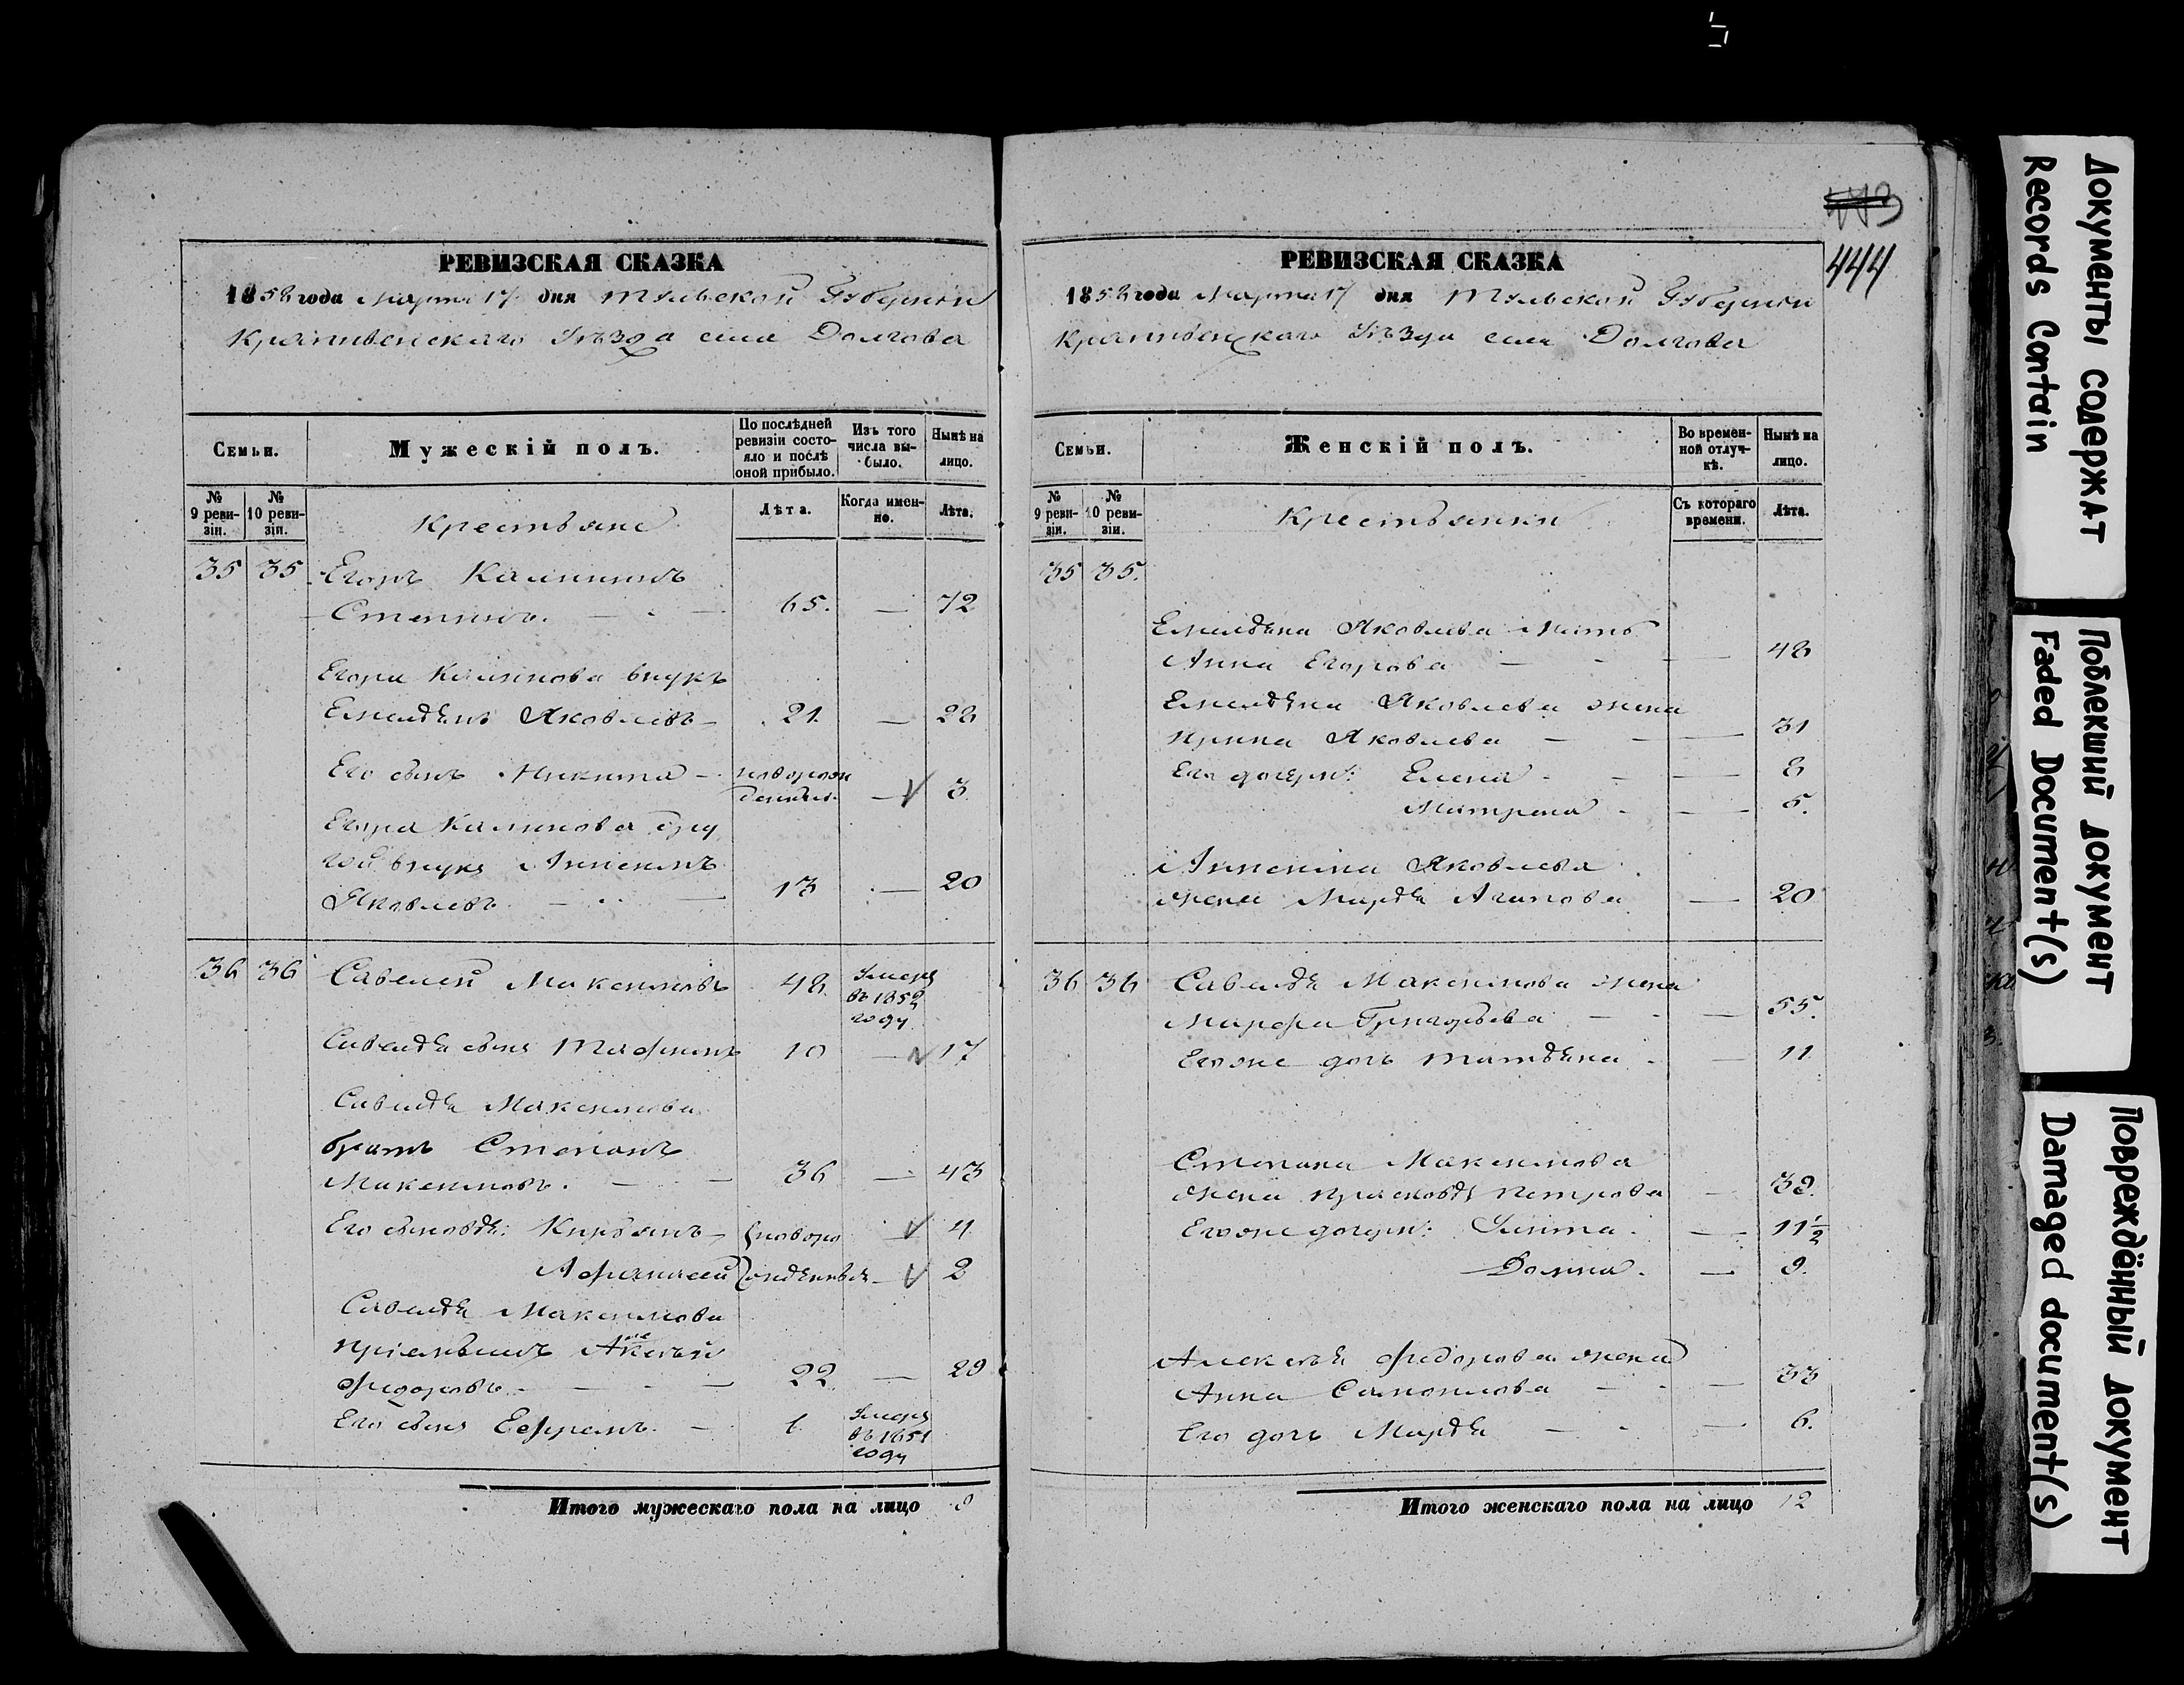 443
444
РЕВИЗСКАЯ СКАЗКА
1858 года Марта 17 дня Тульской Губернiи
Крапивенскаго Уѣзда села Долгова
Семьи.
Мужескій полъ.
По послѣдней ревизіи состояло и послѣ оной прибыло.
Изъ того числа выбыло.
Нынѣ на лицо.
№ 9 ревизіи.
№ 10 ревизіи.
Крестьяне
Лѣта.
Когда именно.
Лѣта.
35 35 Егоръ Калининъ
Степинъ. 65. — 72
Егора Калинова внукъ
Емельянъ Яковлевъ — 21. — 28
Его сынъ Никита — новорож
денный — 3
Егора Калинова дру
гой внукъ Анисимъ
Яковлевъ — 13 — 20
36 36 Савелей Максимовъ 48 Умеръ
въ 1852
году
Савелья сынъ Трофимъ 10 — 17
Савелья Максимова
братъ Степанъ
Максимовъ. — 36 — 43
Его сыновья: Кирьянъ — новоро — 4
Афанасей жденные — 2
Савелья Максимова
пріемышъ Алексѣй
Федоровъ — 22 — 29
Его сынъ Ефремъ — 1 Умеръ
въ 1851
году
Итого мужескаго пола на лицо 9
РЕВИЗСКАЯ СКАЗКА
1858 года Марта 17 дня Тульской Губернiи
Крапивенскаго Уѣзда села Долгова
Семьи.
Женскій полъ.
Во временной отлучкѣ.
Нынѣ на лицо.
№ 9 ревизіи.
№ 10 ревизіи.
Крестьянки
Съ котораго времени.
Лѣта.
35 35.
Емельяна Яковлева мать
Анна Егорова — 48
Емельяна Яковлева жена
Ирина Яковлева — 31
Его дочери: Елена — 8
Матрена — 5.
Анисима Яковлева
жена Марья Агапова — 20
36 36 Савелья Максимова жена
Марфа Григорьева — 55.
Его же дочь Татьяна — 11
Степана Максимова
жена Прасковья Петрова — 39.
Его же дочери: Улита. — 11½
Домна. — 9.
Алексѣя Федорова жена
Анна Самойлова — 33
Его дочь Марья — 6.
Итого женскаго пола на лицо 12
Документы содержат
Records Contain
Поблекший документ
Faded Document(s)
Повреждённый документ
Damaged document(s)